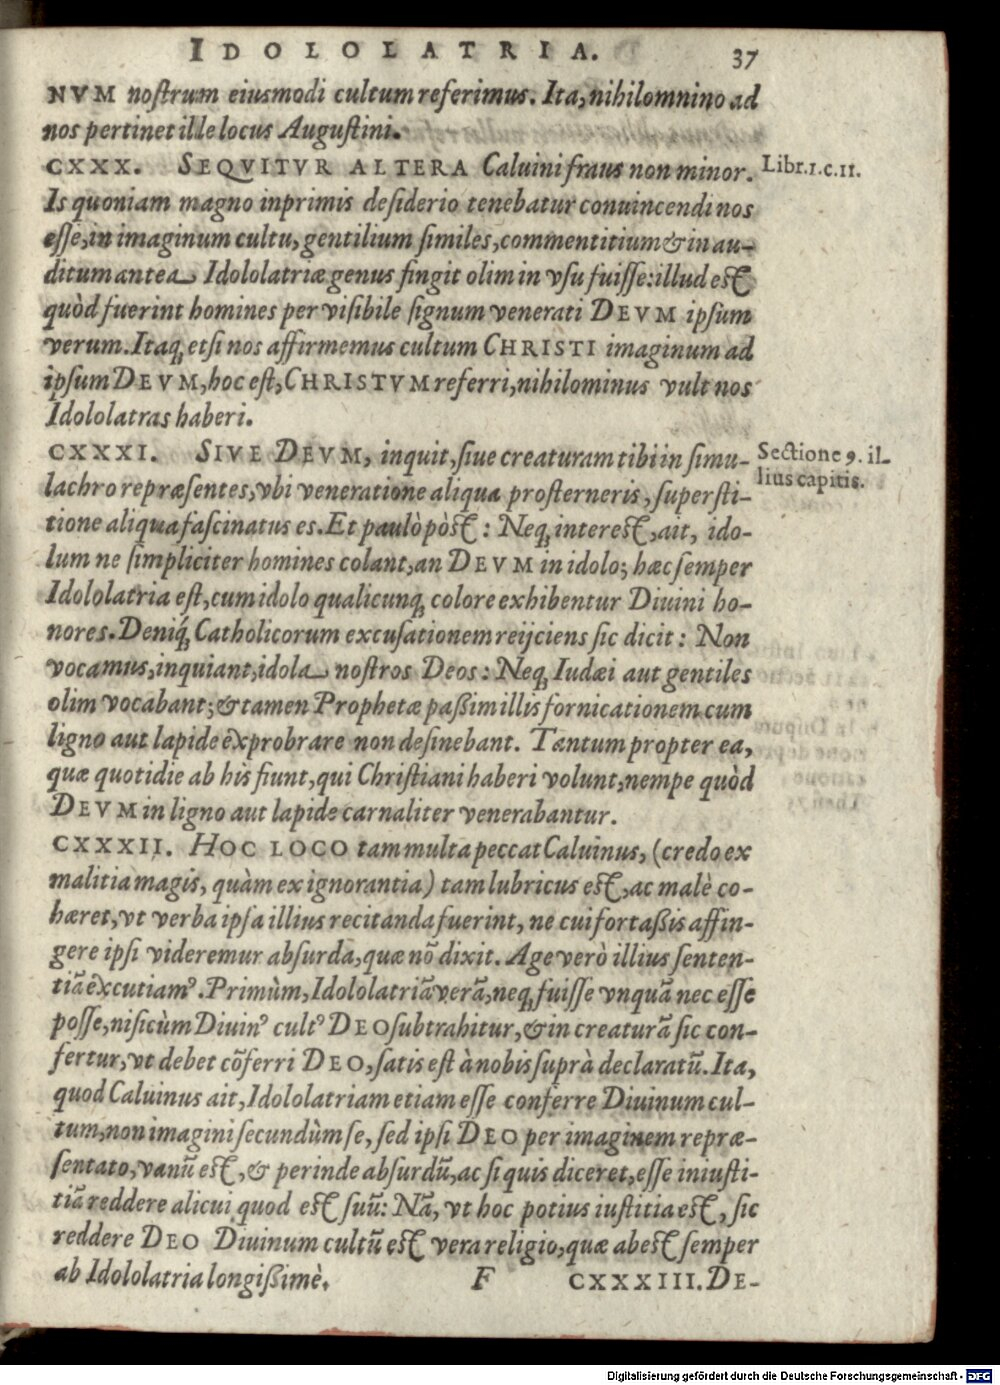 IDOLOLATRIA. 37
NVM nostrum eiusmodi cultum referimus. Ita, nihil omnino ad
nos pertinet ille locus Augustini.
CXXX. SEQVITVR ALTERA Caluini fraus non minor. Libr.1.c.11.
Is quoniam magno inprimis desiderio tenebatur conuincendi nos
esse, in imaginum cultu, gentilium similes, commentitium & inau-
ditum antea Idololatriæ genus fingit olim in vsu fuisse: illud est
quòd fuerint homines per visibile signum venerati DEVM ipsum
verum. Itaq; etsi nos affirmemus cultum CHRISTI imaginum ad
ipsum DEVM, hoc est, CHRISTVM referri, nihilominus vult nos
Idololatras haberi.
CXXXI. SIVE DEVM, inquit, siue creaturam tibi in simu- Sectione 9. il-
lachro repræsentes, vbi veneratione aliqua prosterneris, supersti- lius capitis.
tione aliqua fascinatus es. Et paulò pòst: Neq; interest, ait, ido-
lum ne simpliciter homines colant, an DEVM in idolo; hæc semper
Idololatria est, cum idolo qualicunq; colore exhibentur Diuini ho-
nores. Deniq; Catholicorum excusationem reijciens sic dicit: Non
vocamus, inquiant, idola nostros Deos: Neq; Iudæi aut gentiles
olim vocabant; & tamen Prophetæ paßim illis fornicationem cum
ligno aut lapide exprobrare non desinebant. Tantum propter ea,
quæ quotidie ab his fiunt, qui Christiani haberi volunt, nempe quòd
DEVM in ligno aut lapide carnaliter venerabantur.
CXXXII. HOC LOCO tam multa peccat Caluinus, (credo ex
malitia magis, quàm ex ignorantia) tam lubricus est, ac malè co-
hæret, vt verba ipsa illius recitanda fuerint, ne cui fortaßis affin-
gere ipsi videremur absurda, quæ nõ dixit. Age verò illius senten-
tiã excutiamꝰ. Primùm, Idololatriã verã, neq; fuisse vnquã nec esse
posse, nisi cùm Diuinꝰ cultꝰ DEO subtrahitur, & in creaturã sic con-
fertur, vt debet cõferri DEO, satis est à nobis suprà declaratũ. Ita,
quod Caluinus ait, Idololatriam etiam esse conferre Diuinum cul-
tum, non imagini secundùm se, sed ipsi DEO per imaginem repræ-
sentato, vanũ est, & perinde absurdũ, ac si quis diceret, esse iniusti-
tiã reddere alicui quod est suũ: Nã, vt hoc potius iustitia est, sic
reddere DEO Diuinum cultũ est vera religio, quæ abest semper
ab Idololatria longißimè. F CXXXIII. DE-
Digitalisierung gefördert durch die Deutsche Forschungsgemeinschaft - DFG